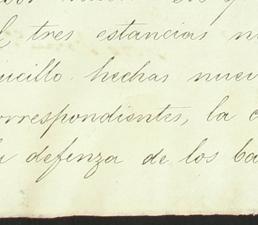 tres estancias
ucillo hechas nuev
orrespondientes, la c
defenza de los ba